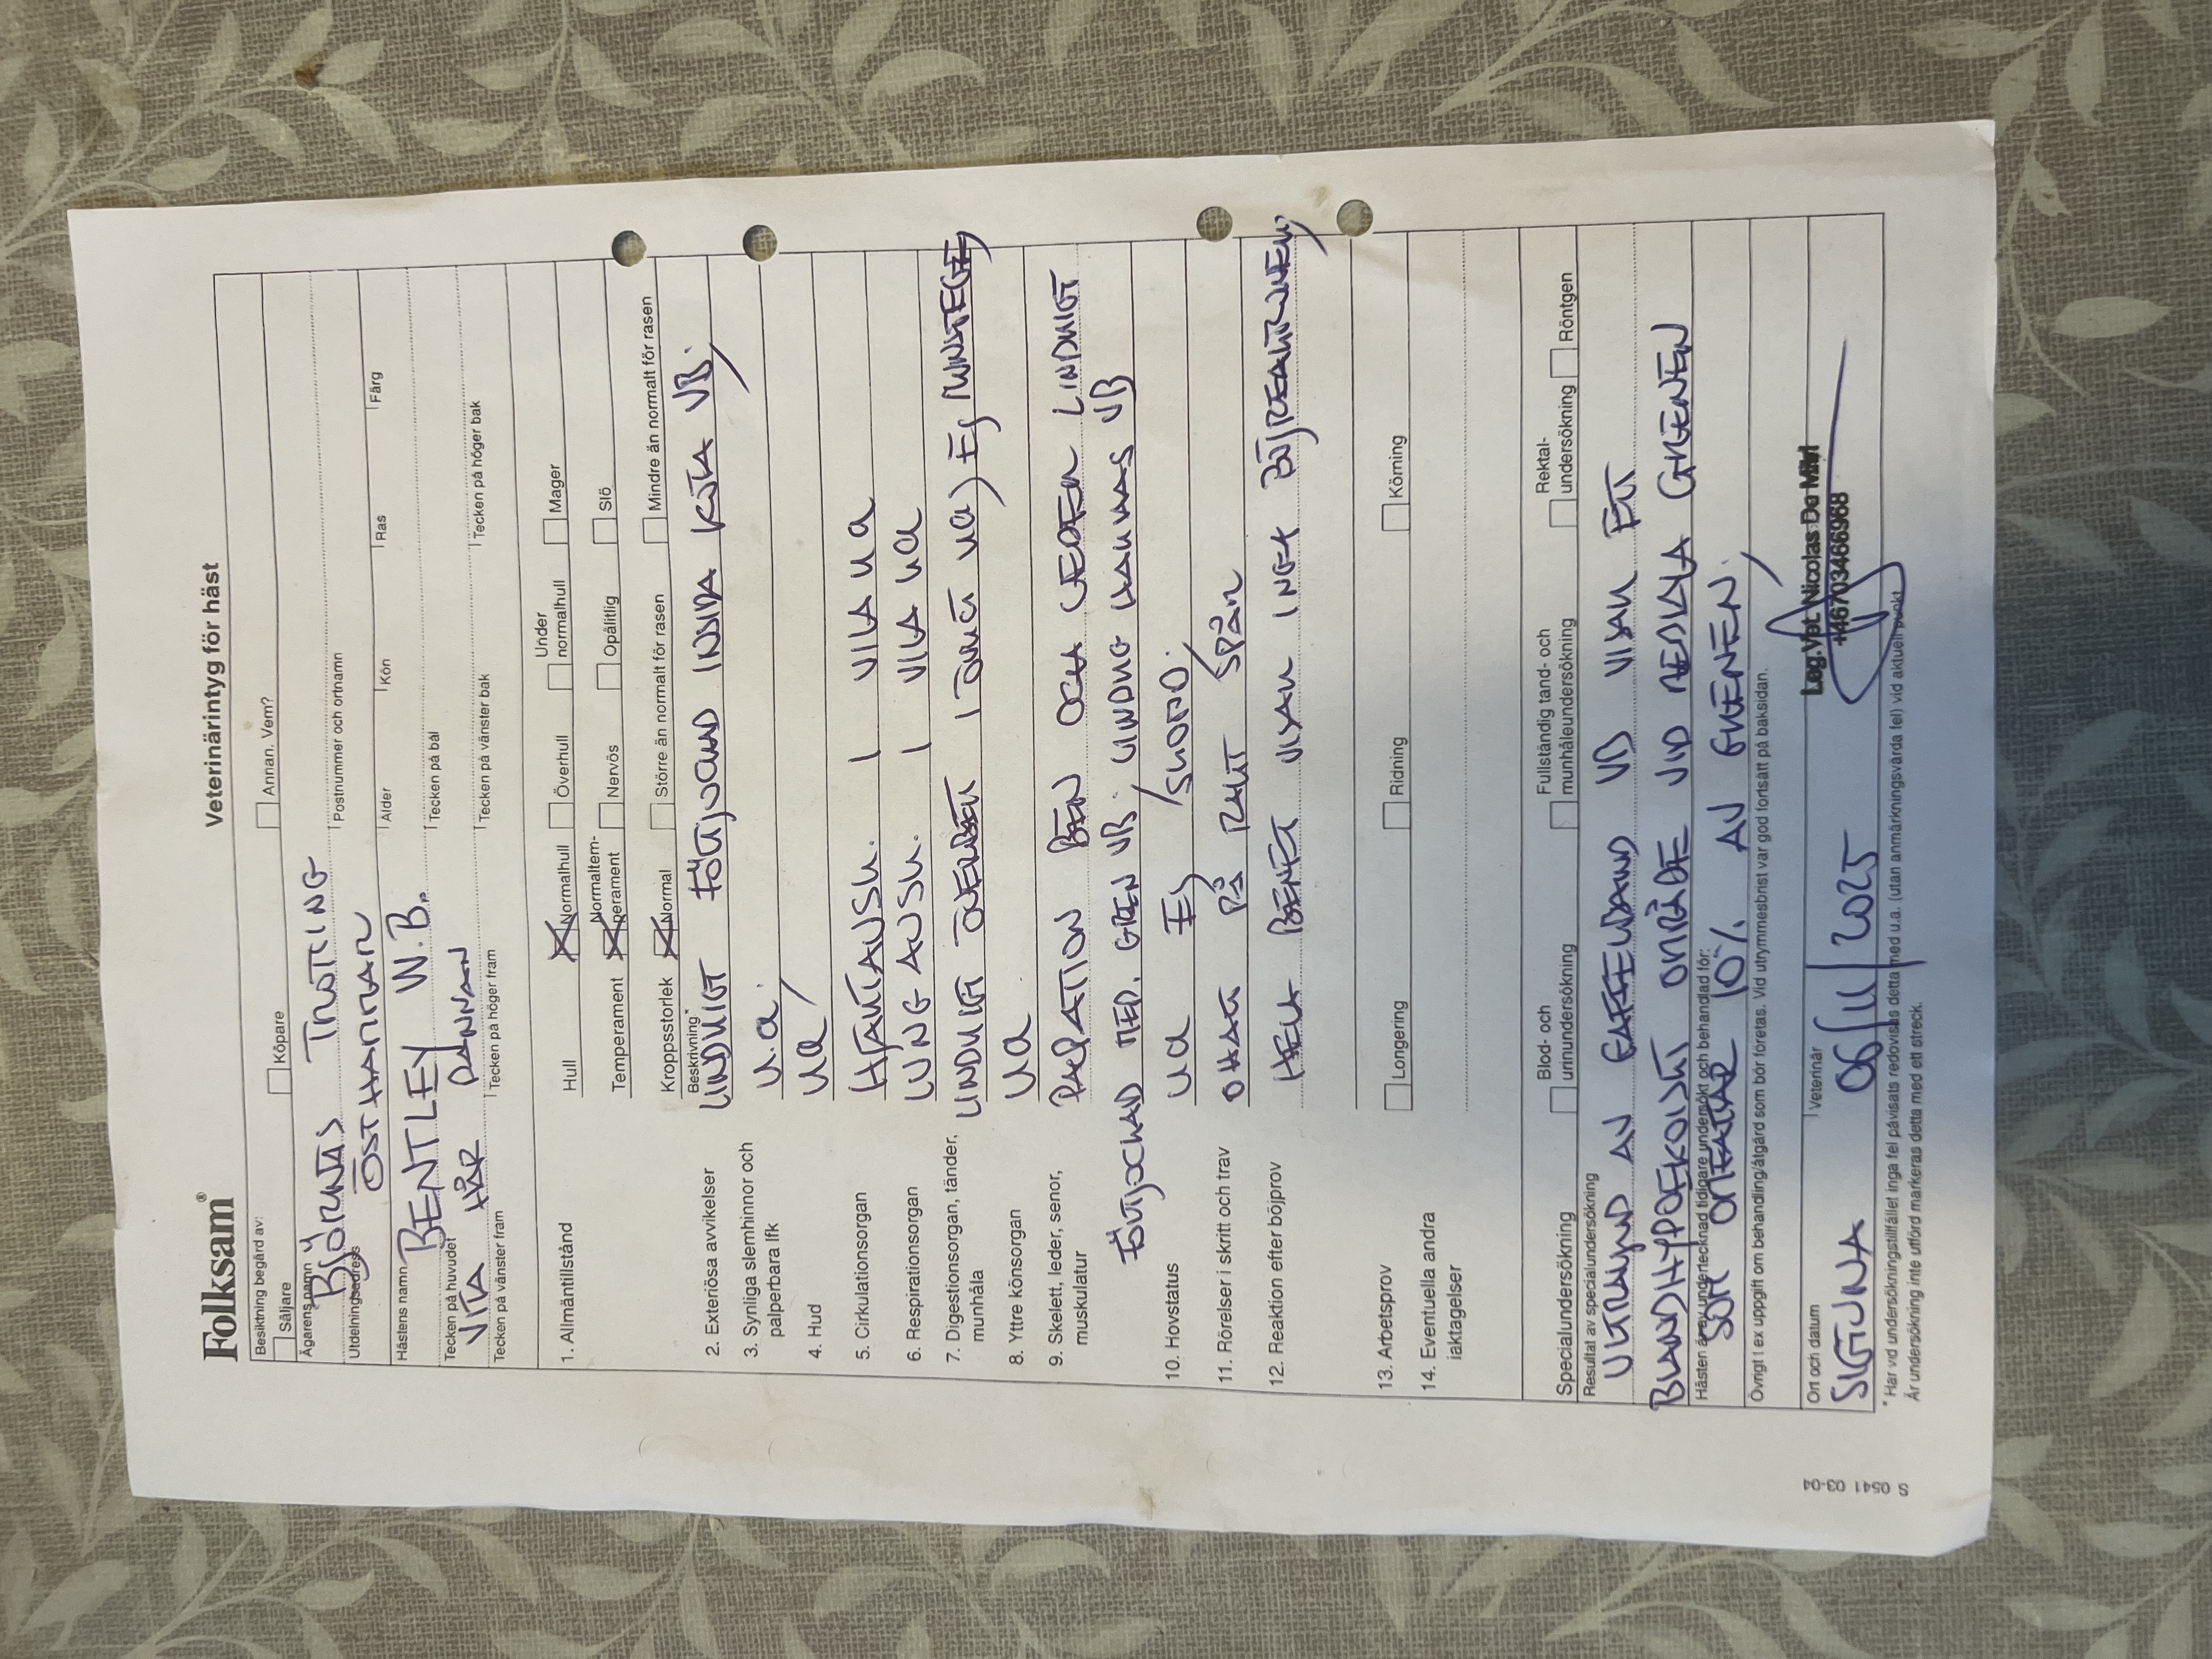 Folksam®
Veterinärintyg för häst
Besiktning begärd av:
Säljare Köpare Annan. Vem?
Ägarens namn
BJÖRKNÄS TROTTING
Utdelningsadress Postnummer och ortnamn
ÖSTHAMMAR
Hästens namn Ålder Kön Ras Färg
BENTLEY W.B.
Tecken på huvudet Tecken på bål
VITA HÅR PANNAN
Tecken på vänster fram Tecken på höger fram Tecken på vänster bak Tecken på höger bak
1. Allmäntillstånd Hull Normalhull Överhull Under normalhull Mager
Temperament Normaltemperament Nervös Opålitlig Slö
Kroppsstorlek Normal Större än normalt för rasen Mindre än normalt för rasen
Beskrivning*
2. Exteriösa avvikelser LINDRIGT FÖRTJOCKAD INSIDA KOTA VB.
3. Synliga slemhinnor och palperbara lfk u.a.
4. Hud ua
5. Cirkulationsorgan HJÄRTAUSK. I VILA ua
6. Respirationsorgan LUNGAUSK. I VILA ua
7. Digestionsorgan, tänder, munhåla LINDRIGT ÖVERBETT I ÖVRIGT ua) Ej
8. Yttre könsorgan ua
9. Skelett, leder, senor, muskulatur PALPATION BEN OCH LEDER LINDRIGT
FÖRTJOCKAD MED. GREN VB, LINDRIG VB
10. Hovstatus ua Ej SKODD.
11. Rörelser i skritt och trav OHALT PÅ RAKT SPÅR
12. Reaktion efter böjprov HELA BENET VISAR INGA BÖJREAKTIONER
13. Arbetsprov Longering Ridning Körning
14. Eventuella andra iakttagelser
Specialundersökning Blod- och urinundersökning Fullständig tand- och munhåleundersökning Rektalundersökning Röntgen
Resultat av specialundersökning
ULTRALJUD AV GAFFELBAND VB VISAR ETT
BLANDHYPOEKOISKT OMRÅDE VID MEDIALA GRENEN
Hästen är av undertecknad tidigare undersökt och behandlad för:
SOM OMFATTAR 10% AV GRENEN.
Övrigt t ex uppgift om behandling/åtgärd som bör företas. Vid utrymmesbrist var god fortsätt på baksidan.
Ort och datum Veterinär
SIGTUNA 06/11/2025
Leg.Vet. Nicolas De Mitri
+46703466968
*Har vid undersökningstillfället inga fel påvisats redovisas detta med u.a. (utan anmärkningsvärda fel) vid aktuell punkt.
Är undersökning inte utförd markeras detta med ett streck.
S 0541 03-04